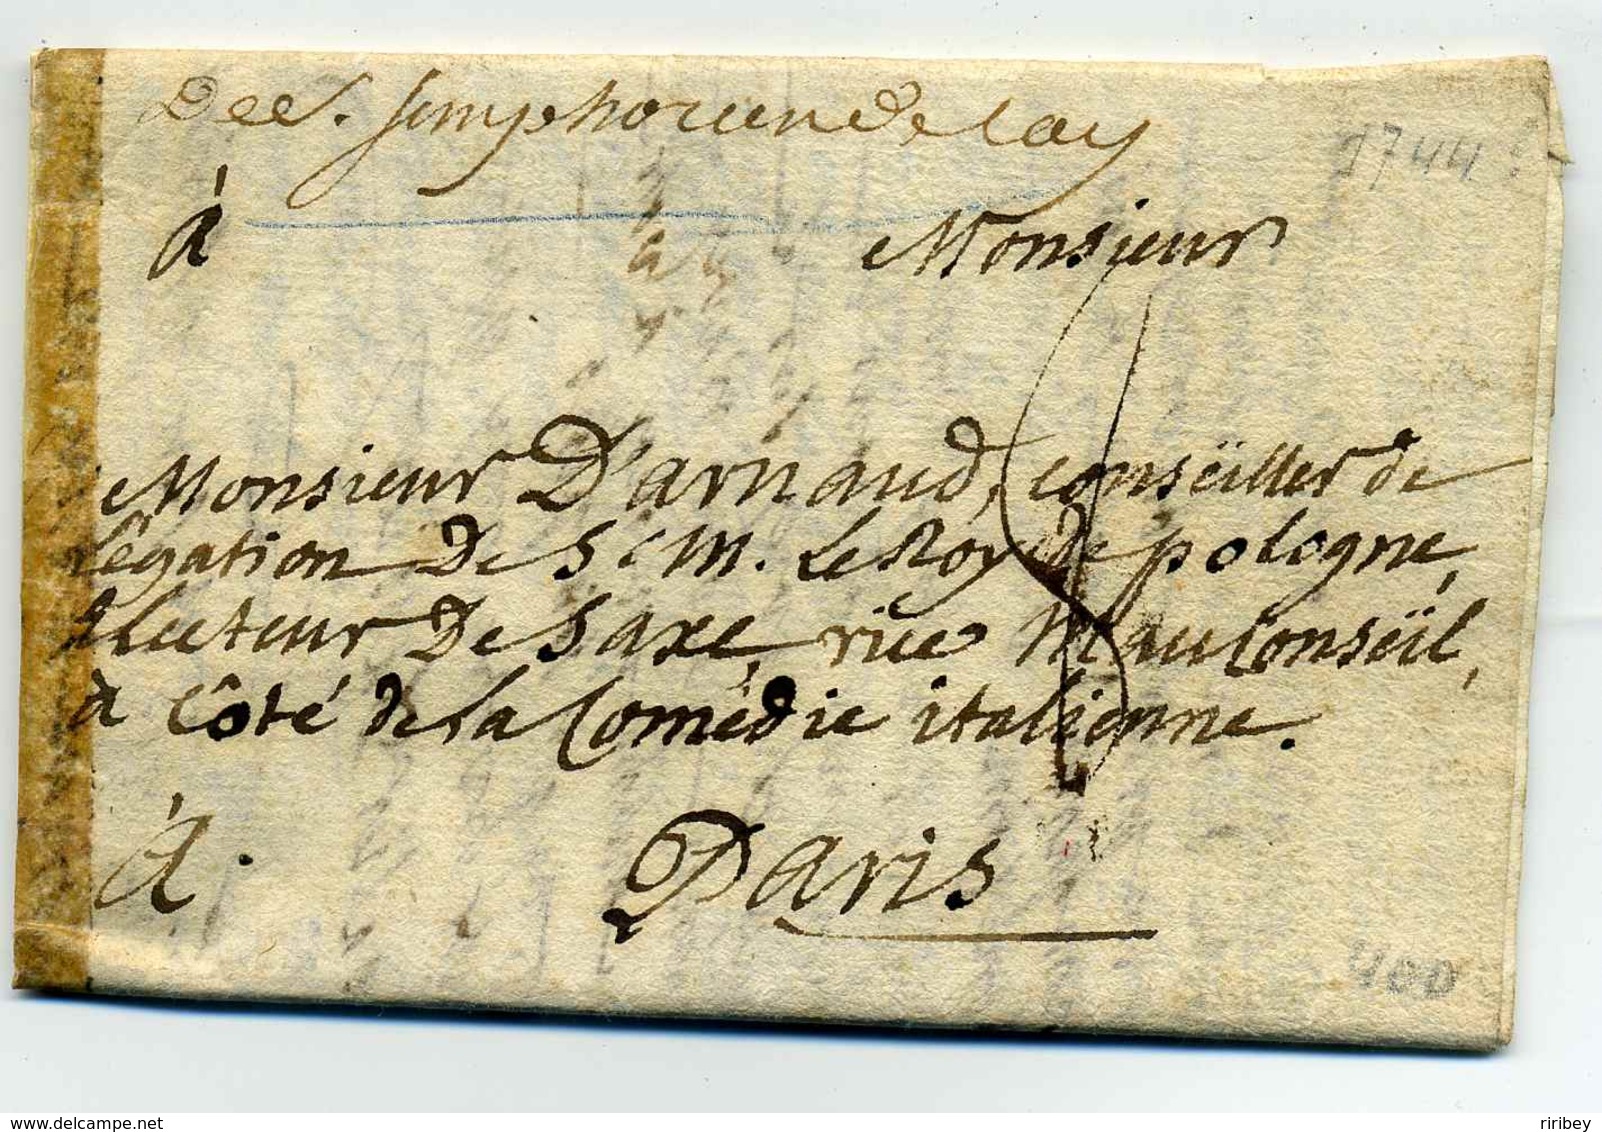 De S. Simphorien de lay
1744
à Monsieur
Monsieur D'arnaud, conseïller de
légation De S. M. Le Roy de pologne,
Electeur De Saxe, rüe Mauconseïl,
à côté de la Comédie italienne.
À. Paris
400
riribey